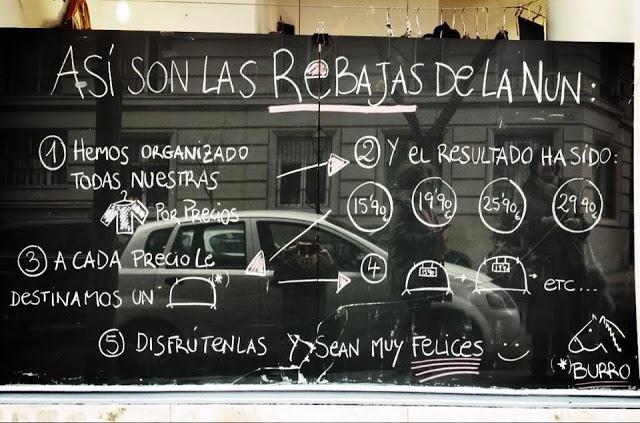 ASÍ SON LAS REBAJAS DE LA NUN:
① HEMOS ORGANIZADO
TODAS NUESTRAS
POR PRECIOS
② Y EL RESULTADO HA SIDO:
15'90€ 19'90€ 25'90€ 29'90€
③ A CADA PRECIO LE
DESTINAMOS UN (*)
④ → ETC...
⑤ DISFRÚTENLAS Y SEAN MUY FELICES
(*) BURRO